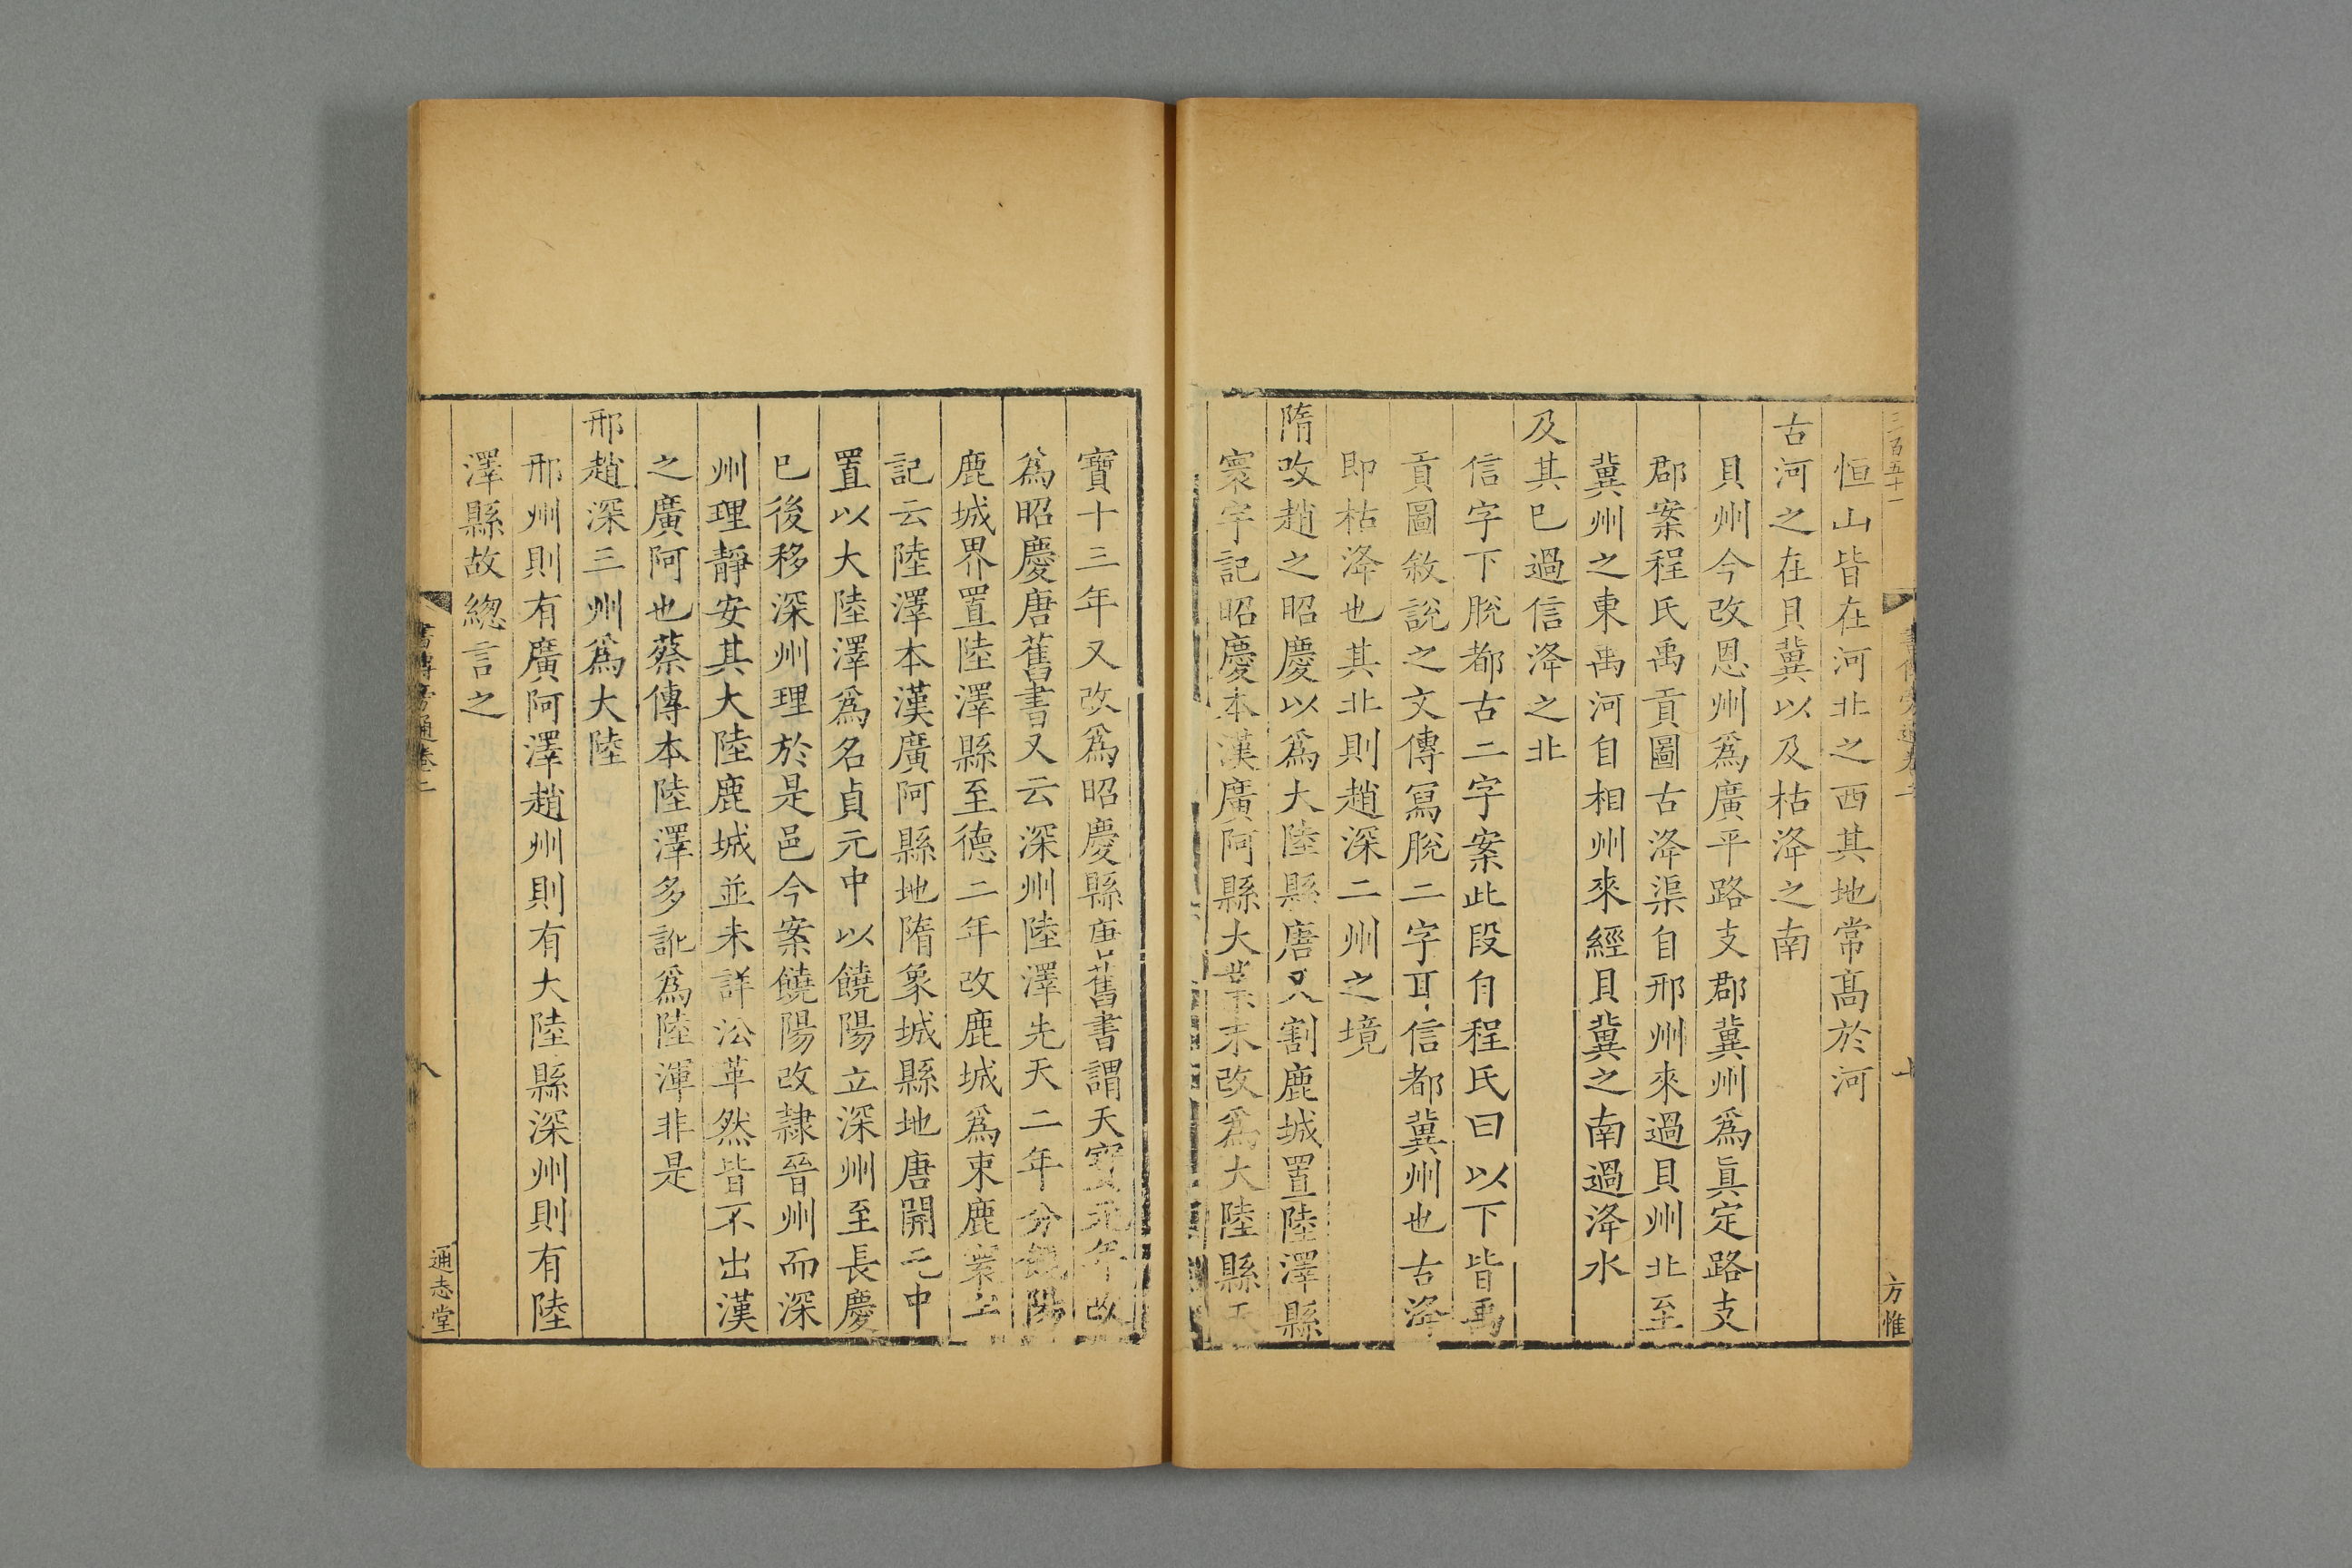 三百五十一
方惟
恒山皆在河北之西其地常髙於河
古河之在貝冀以及枯洚之南
貝州今改恩州爲廣平路支郡冀州爲眞定路支
郡案程氏禹貢圖古洚渠自邢州來過貝州北至
冀州之東禹河自相州來經貝冀之南過洚水
及其已過信洚之北
信字下脫都古二字案此段自程氏曰以下皆禹
貢圖敘說之文傳寫脫二字耳信都冀州也古洚
即枯洚也其北則趙深二州之境
隋改趙之昭慶以爲大陸縣唐又割鹿城置陸澤縣
寰宇記昭慶本漢廣阿縣大業末改爲大陸縣天
寶十三年又改爲昭慶縣唐舊書謂天寶元年改
爲昭慶唐舊書又云深州陸澤先天二年分饒陽
鹿城界置陸澤縣至德二年改鹿城爲束鹿寰宇
記云陸澤本漢廣阿縣地隋象城縣地唐開元中
置以大陸澤爲名貞元中以饒陽立深州至長慶
已後移深州理於是邑今案饒陽改隸晉州而深
州理靜安其大陸鹿城並未詳㳂革然皆不出漢
之廣阿也蔡傳本陸澤多訛爲陸渾非是
邢趙深三州爲大陸
邢州則有廣阿澤趙州則有大陸縣深州則有陸
澤縣故緫言之
書傳旁通卷二
八
通志堂